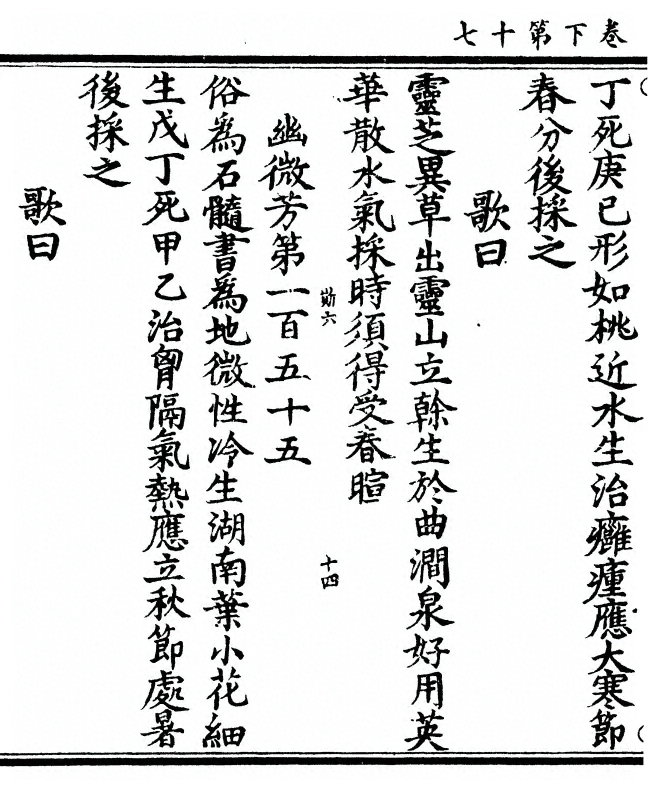 卷下第十七
丁死庚巳形如桃近水生治癰瘇應大寒節
春分後採之
歌曰
靈芝異草出靈山立榦生於曲澗泉好用英
華散水氣採時須得受春暄
幽微芳第一百五十五
勛六
十四
俗為石髓書為地微性冷生湖南葉小花細
生戊丁死甲乙治胷隔氣熱應立秋節處暑
後採之
歌曰